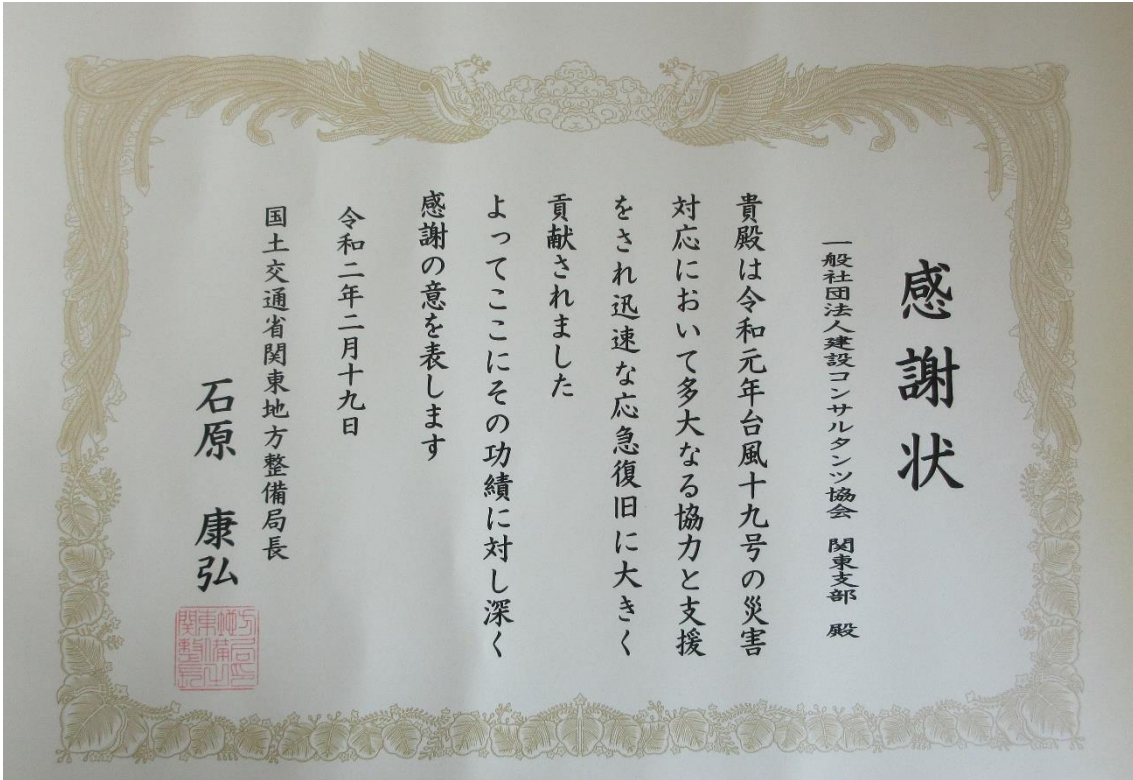 感謝状
一般社団法人建設コンサルタンツ協会 関東支部 殿
貴殿は令和元年台風十九号の災害
対応において多大なる協力と支援
をされ迅速な応急復旧に大きく
貢献されました
よってここにその功績に対し深く
感謝の意を表します
令和二年二月十九日
国土交通省関東地方整備局長
石原 康弘